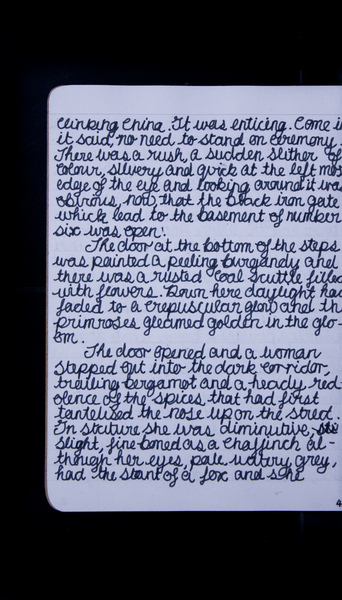 clinking china. It was enticing. Come in
it said, no need to stand on ceremony.
There was a rush, a sudden slither of
colour, silvery and quick at the left most
edge of the eye and looking around it was
obvious, now, that the black iron gate
which lead to the basement of number
six was open.
The door at the bottom of the steps
was painted a peeling burgandy and
there was a rusted coal scuttle filled
with flowers. Down here daylight had
faded to a crepuscular glow and th
primroses gleamed golden in the glo-
om.
The door opened and a woman
stepped out into the dark corridor,
trailing bergamot and a heady red-
olence of the spices that had first
tantelised the nose up on the street.
In stature she was diminutive,
slight, fine-boned as a chaffinch al-
though her eyes, pale watery grey,
had the slant of a fox and she
4